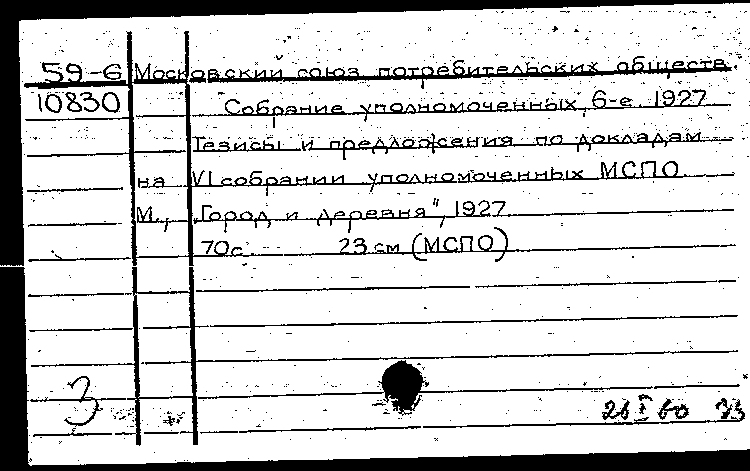 59-6 Московский союз потребительских обществ.
10830 Собрание уполномоченных, 6-е. 1927
Тезисы и предложения по докладам
на VI собрании уполномоченных МСПО
М., „Город и деревня", 1927
70с. 23 см (МСПО)
3
26 I 60